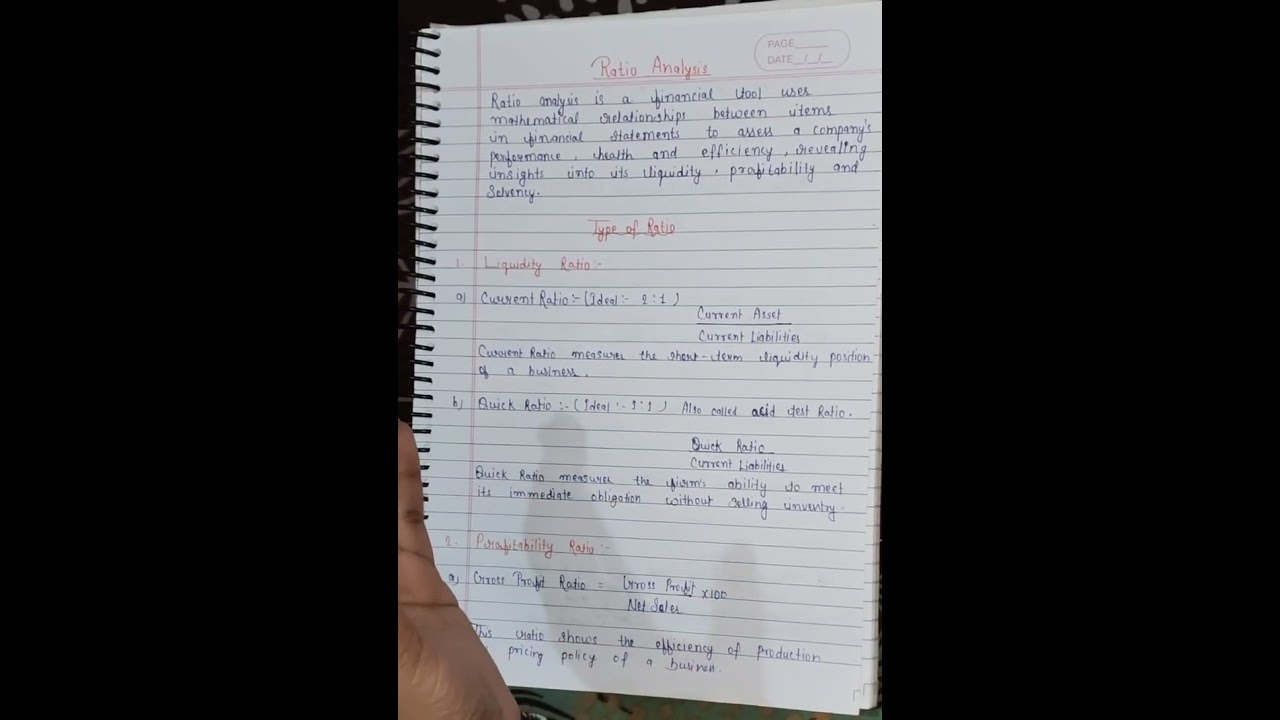 PAGE
DATE / /
Ratio Analysis
Ratio analysis is a financial tool uses
mathematical relationships between items
in financial statements to assess a company's
performance, health and efficiency, revealing
insights into its liquidity, profitability and
Solvency.
Type of Ratio
1. Liquidity Ratio:-
a) Current Ratio:- (Ideal:- 2:1)
Current Asset
Current Liabilities
Current Ratio measures the short-term liquidity position
of a business.
b) Quick Ratio:- (Ideal:- 1:1) Also called acid test Ratio.
Quick Ratio
Current Liabilities
Quick Ratio measures the firm's ability to meet
its immediate obligation without selling inventry.
2. Profitability Ratio:-
a) Gross Profit Ratio = Gross Profit x100
Net Sales
This ratio shows the efficiency of production
pricing policy of a business.